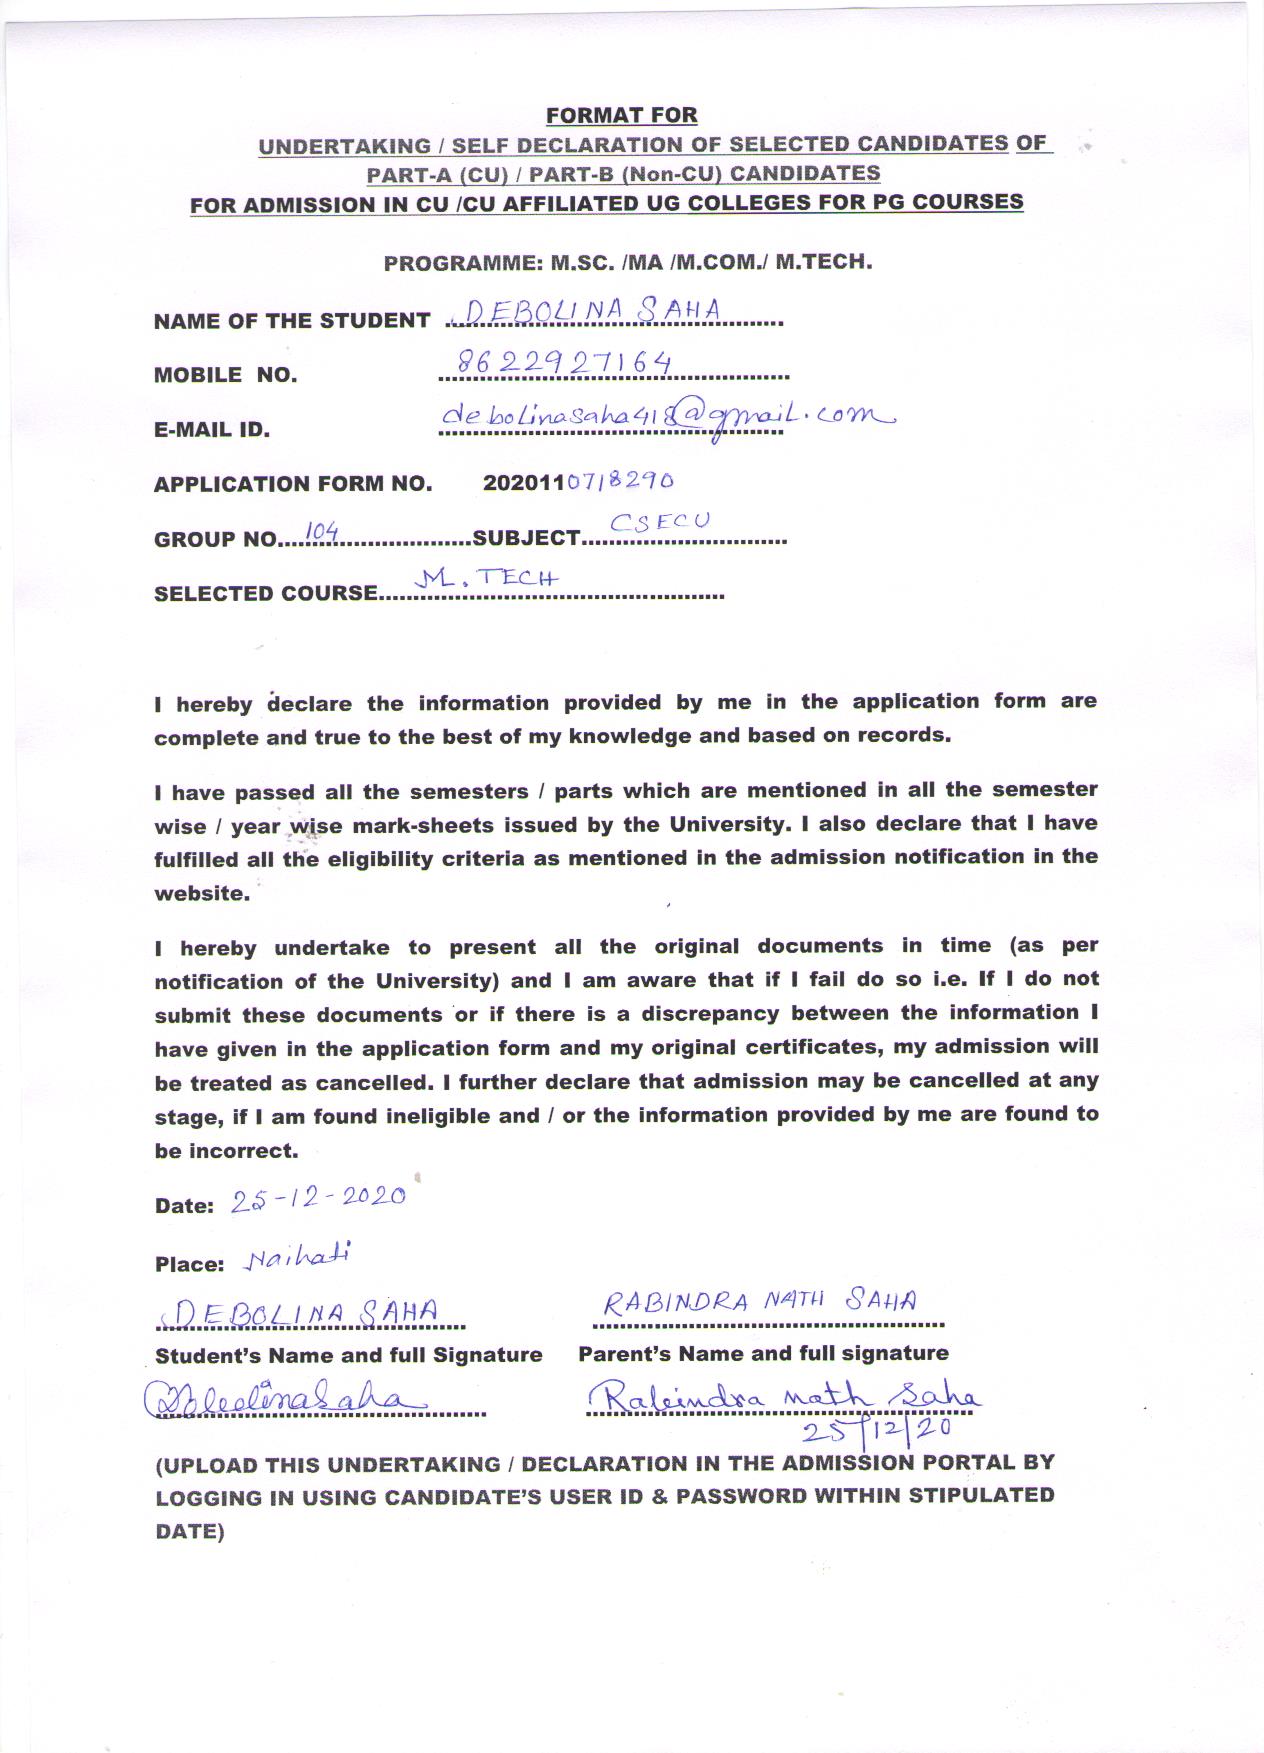 FORMAT FOR
UNDERTAKING / SELF DECLARATION OF SELECTED CANDIDATES OF
PART-A (CU) / PART-B (Non-CU) CANDIDATES
FOR ADMISSION IN CU /CU AFFILIATED UG COLLEGES FOR PG COURSES
PROGRAMME: M.SC. /MA /M.COM./ M.TECH.
NAME OF THE STUDENT DEBOLINA SAHA
MOBILE NO. 8622927164
E-MAIL ID. debolinasaha418@gmail.com
APPLICATION FORM NO. 2020110718290
GROUP NO....104....SUBJECT....CSECU....
SELECTED COURSE....M.TECH....
I hereby declare the information provided by me in the application form are
complete and true to the best of my knowledge and based on records.
I have passed all the semesters / parts which are mentioned in all the semester
wise / year wise mark-sheets issued by the University. I also declare that I have
fulfilled all the eligibility criteria as mentioned in the admission notification in the
website.
I hereby undertake to present all the original documents in time (as per
notification of the University) and I am aware that if I fail do so i.e. If I do not
submit these documents or if there is a discrepancy between the information I
have given in the application form and my original certificates, my admission will
be treated as cancelled. I further declare that admission may be cancelled at any
stage, if I am found ineligible and / or the information provided by me are found to
be incorrect.
Date: 25-12-2020
Place: Naihati
DEBOLINA SAHA RABINDRA NATH SAHA
Student's Name and full Signature Parent's Name and full signature
Debolina Saha Rabindra Nath Saha
25/12/20
(UPLOAD THIS UNDERTAKING / DECLARATION IN THE ADMISSION PORTAL BY
LOGGING IN USING CANDIDATE'S USER ID & PASSWORD WITHIN STIPULATED
DATE)